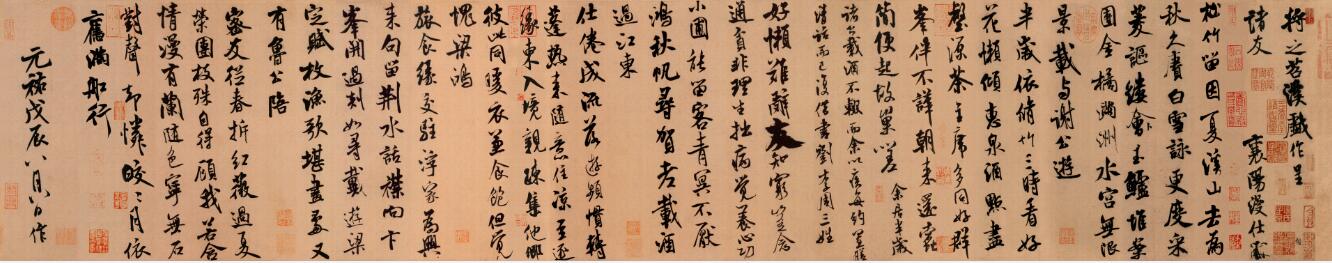 將之苕溪戲作呈
諸友
襄陽漫仕黻
松竹留因夏溪山去為
秋久賡白雪詠更度采
菱謳縷會卜玉鱸堆案
團金橘滿洲水宮無限
景載與謝公遊
半歲依脩竹三時看好
花懶傾惠泉酒點盡
壑源茶主席多同好群
峯伴不譁朝來還蠹
簡便起故巢嗟 余居半歲
諸公載酒不輟而余以疾每約置膳
清話而已復借書劉李周三姓
好懶難辭友知窮豈念
通貧非理生拙病覺養心功
小圃能留客青冥不厭
鴻秋帆尋賀老載酒
過江東
仕倦成流落遊頻慣轉
蓬熱來隨意住涼至逐
緣東入境親疎集他鄉
彼此同暖衣兼食飽但覺
愧梁鴻
旅食緣交駐浮家為興
來句留荆水話襟向卞
峯開過剡如尋戴遊梁
定賦枚漁歌堪畫處又
有魯公陪
密友從春拆紅薇過夏
榮團枝殊自得顧我若含
情漫有蘭隨色寧無石
對聲却憐皎々月依
舊滿船行
元祐戊辰八月八日作